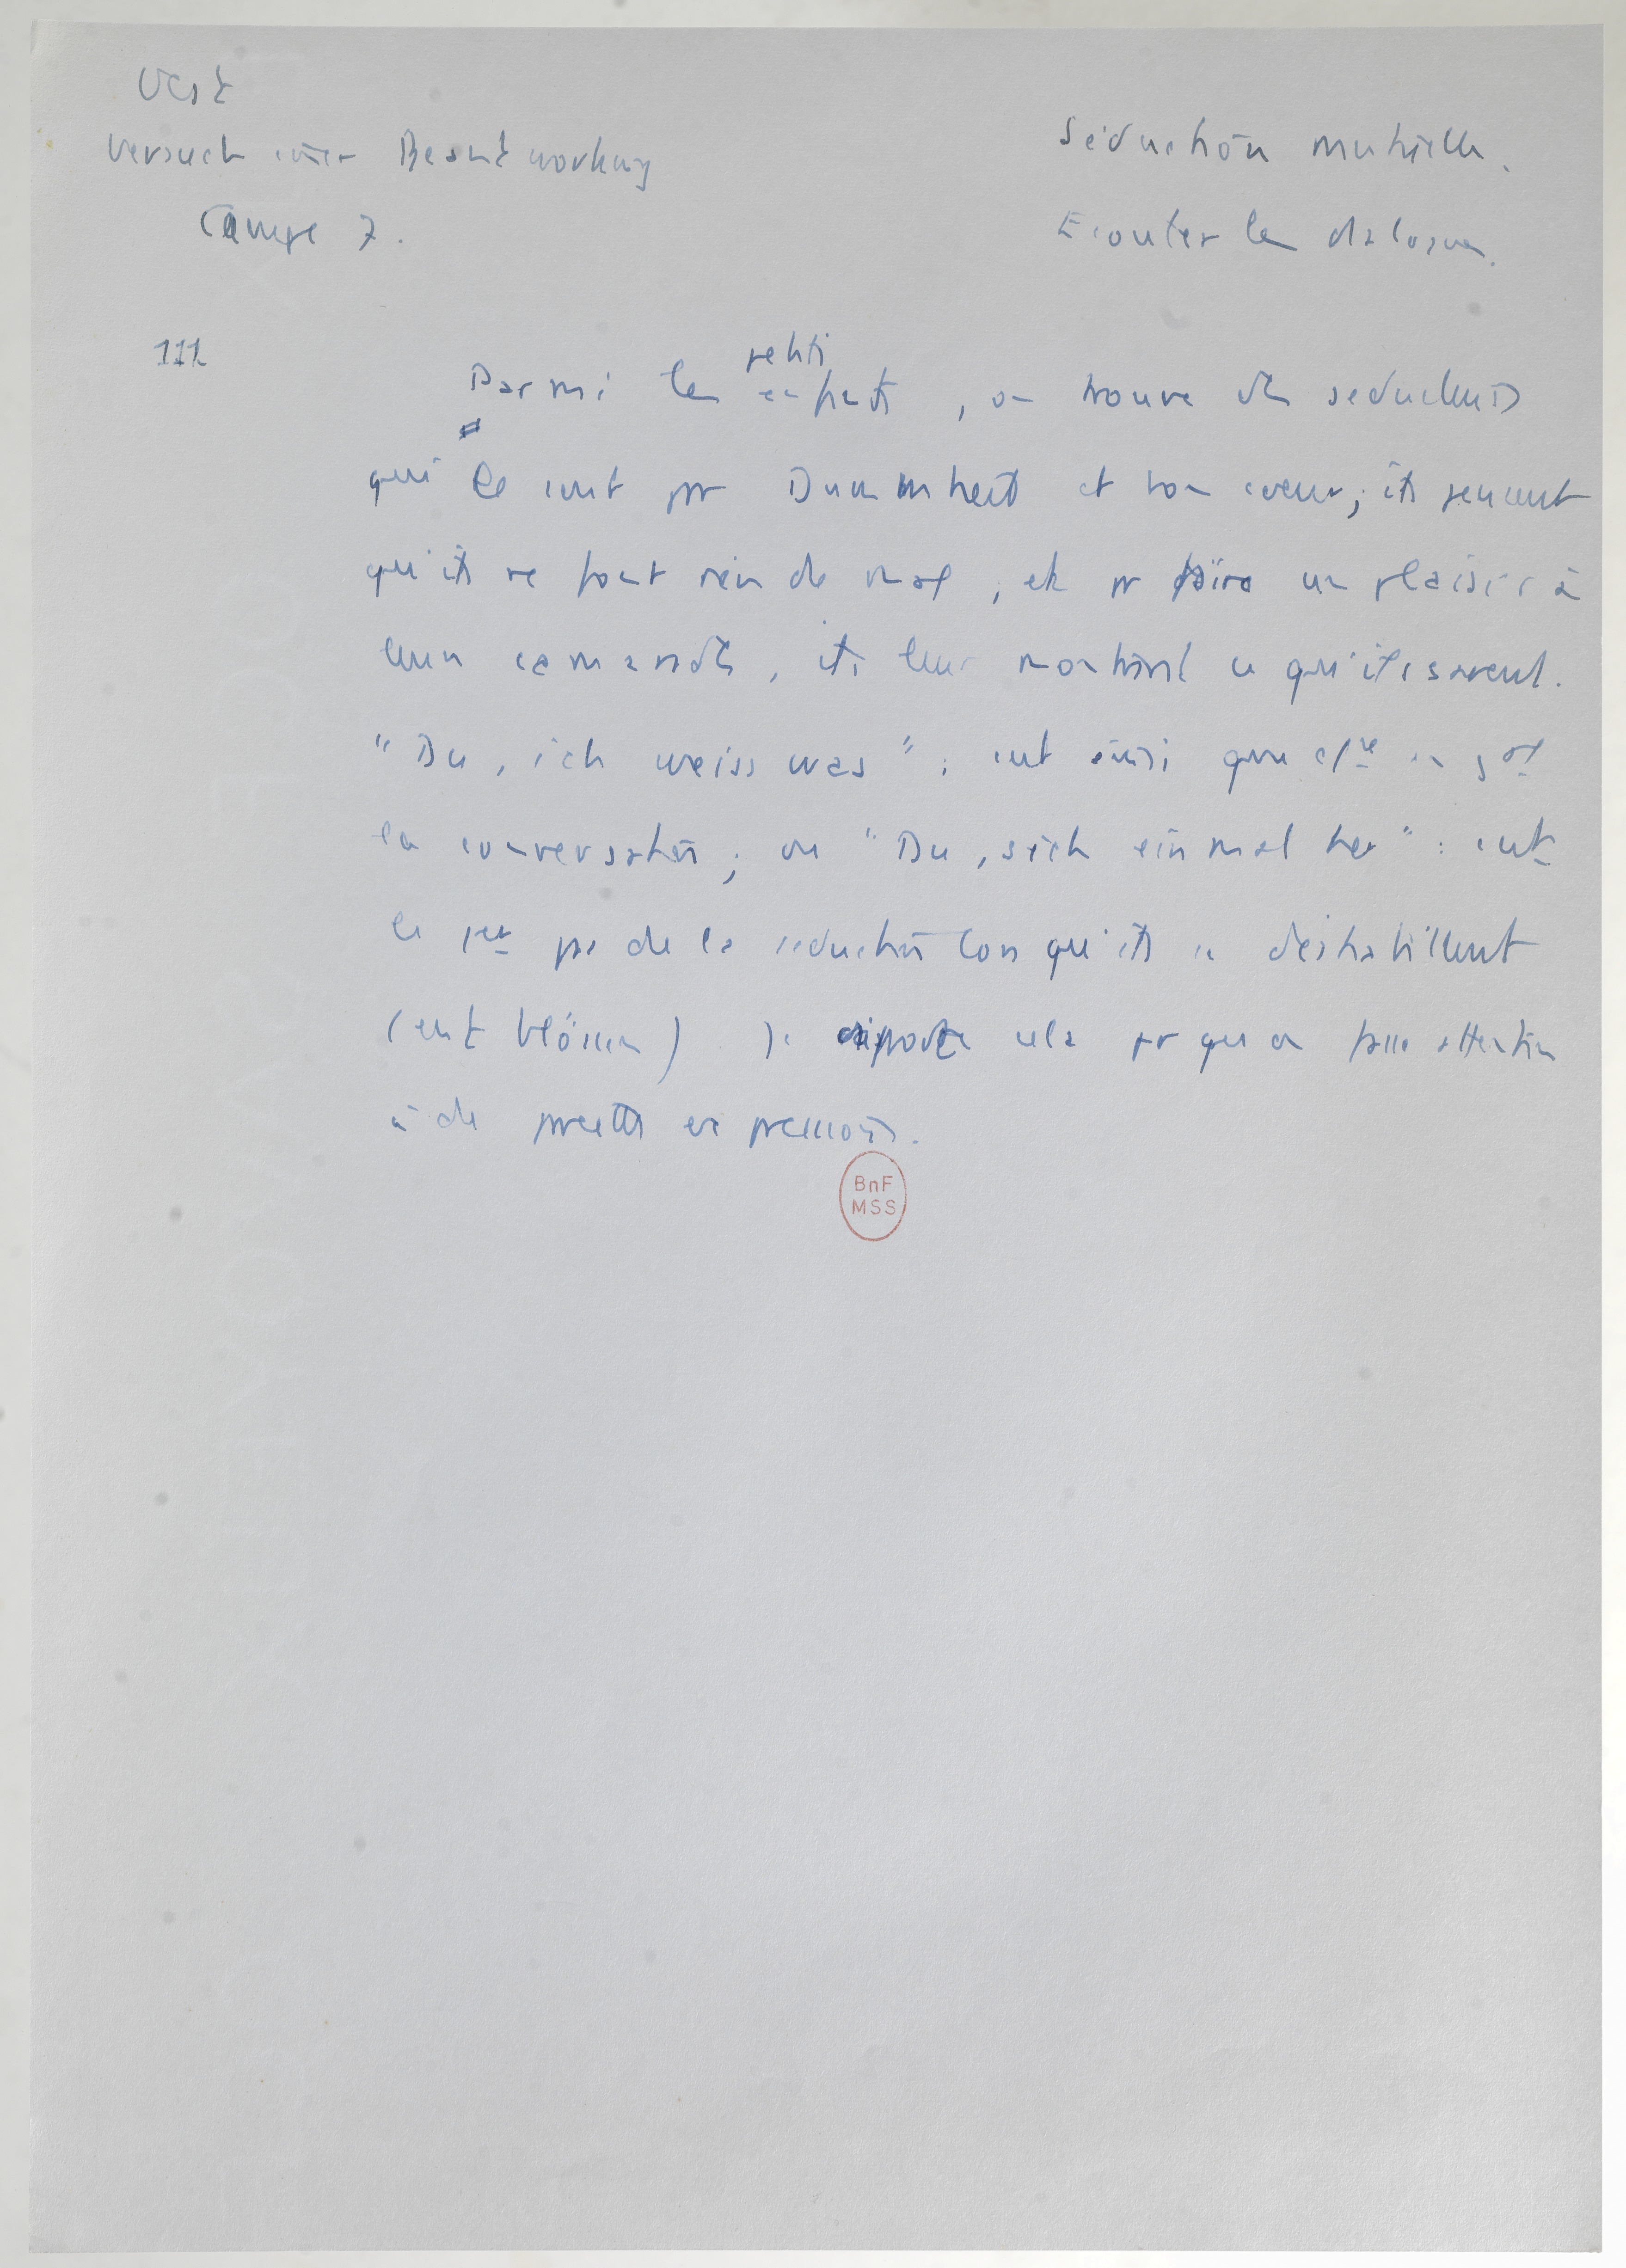 Oest
Versuch einer Beantwortung
Campe 7.
Séduction mutuelle.
Ecouter les dialogues.
111
petits
Parmi les enfants, on trouve des seducteurs
qui le sont par Dummheit et bon coeur; ils pensent
qu'ils ne font rien de mal, et pr faire un plaisir à
leurs camarades, ils leur montrent ce qu'ils savent.
"Du, ich weiss was" : c'est ainsi que en gal
la conversation; ou "Du, sieh einmal her" : c'est
le 1er pas de la seduction lorsqu'ils se deshabillent
(entblössen) Je cela pr qu'on fasse attention
à de pareilles expressions.
BnF
MSS